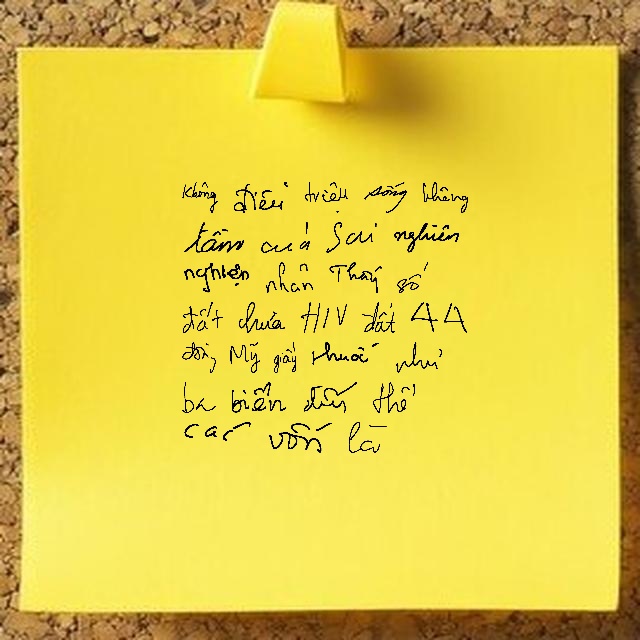 không điều triệu sống không
tâm quá Sai nghiên
nghiện nhân Thấy số
đất chưa HIV đất 44
động Mỹ gây thuốc như
ba biến đến thế
các vốn là